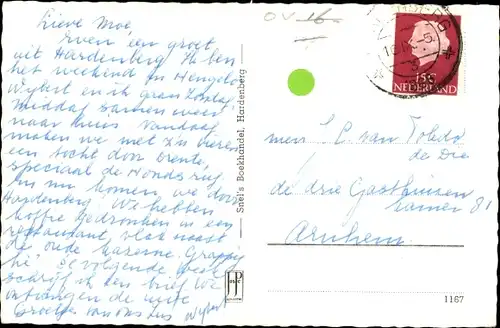 Lieve Moe,
Even een groet
uit Hardenberg. Ik ben
het weekend in Hengelo
Wybert en ik gaan Zondag
middag samen weer
naar huis. Vandaag
maken we met z'n vieren
een tocht door Drente,
speciaal de Hondsrug
En nu komen we door
Hardenberg. We hebben
koffie gedronken in een
restaurant, vlak naast
de oude kazerne. Grappig
hè. De volgende week
schrijf ik een brief. We
ontvangen de uwe
Groetjes van ons Wybert
Snel's Boekhandel, Hardenberg
JP
1167
OV 16
15c
NEDERLAND
mevr. C van Toledo
de Die
de drie Gasthuizen
kamer 81
Arnhem